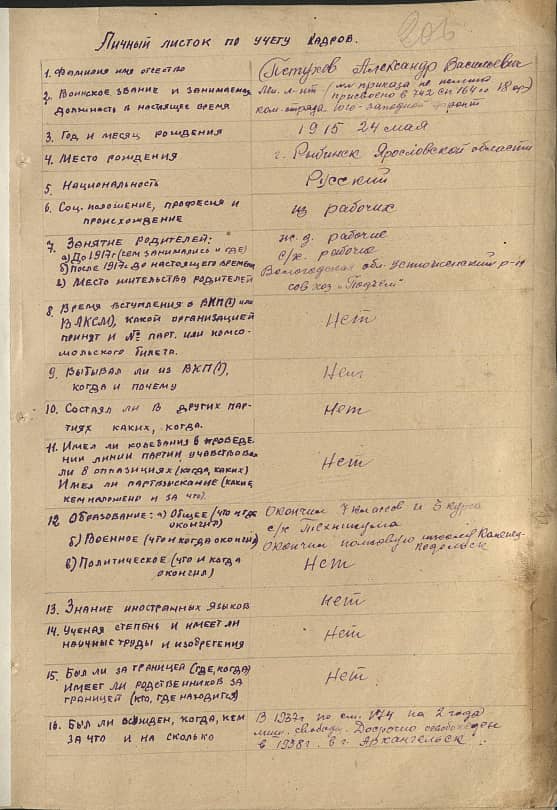 206
Личный листок по учету кадров.
1. Фамилия имя отчество Петухов Александр Васильевич
2. Воинское звание и занимаемая Мл. л-нт (№ приказа не помню
должность в настоящее время присвоено в 742 сп 164 сд 18 ар)
ком. отряда Юго-западной фронт
3. Год и месяц рождения 1915 24 мая
4. Место рождения г. Рыбинск Ярославской области
5. Национальность Русский
6. Соц. положение, професия и
происхождение из рабочих
7. Занятие родителей: ж.д. рабочие
а) До 1917г (чем занимались и где) с/х. рабочие
б) После 1917г. до настоящего времени
в) Место жительства родителей Вологодская обл. Устюженский р-н
совхоз „Подъем"
8. Время вступления в ВКП(б) или
ВЛКСМ), какой организацией
принят и № парт. или комсо-
мольского билета. Нет
9. Выбывал ли из ВКП(б),
когда и почему Нет
10. Состоял ли в других пар-
тиях каких, когда. Нет
11. Имел ли колебания в проведе
нии линии партии, учавствова
ли в оппазициях (когда, каких)
Имел ли партвзискание (какие,
кем наложено и за что). Нет
12 Образование: а) Общее (что и где окончил) Окончил 7 классов и 3 курса
с/х Техникума
б) Военное (что и когда окончил) Окончил полковую школу Каменец-
Подольск
в) Политическое (что и когда
окончил) Нет
13. Знание иностранных языков Нет
14. Ученая степень и имеет ли
научные труды и изобретения Нет
15. Был ли за границей (где, когда)
имеет ли родственников за
границей (кто, где находится) Нет
16. Был ли осужден, когда, кем В 1937г. по ст. на 2 года
за что и на сколько лиш. свободы. Досрочно освобожден
в 1938г. в г. Архангельск.